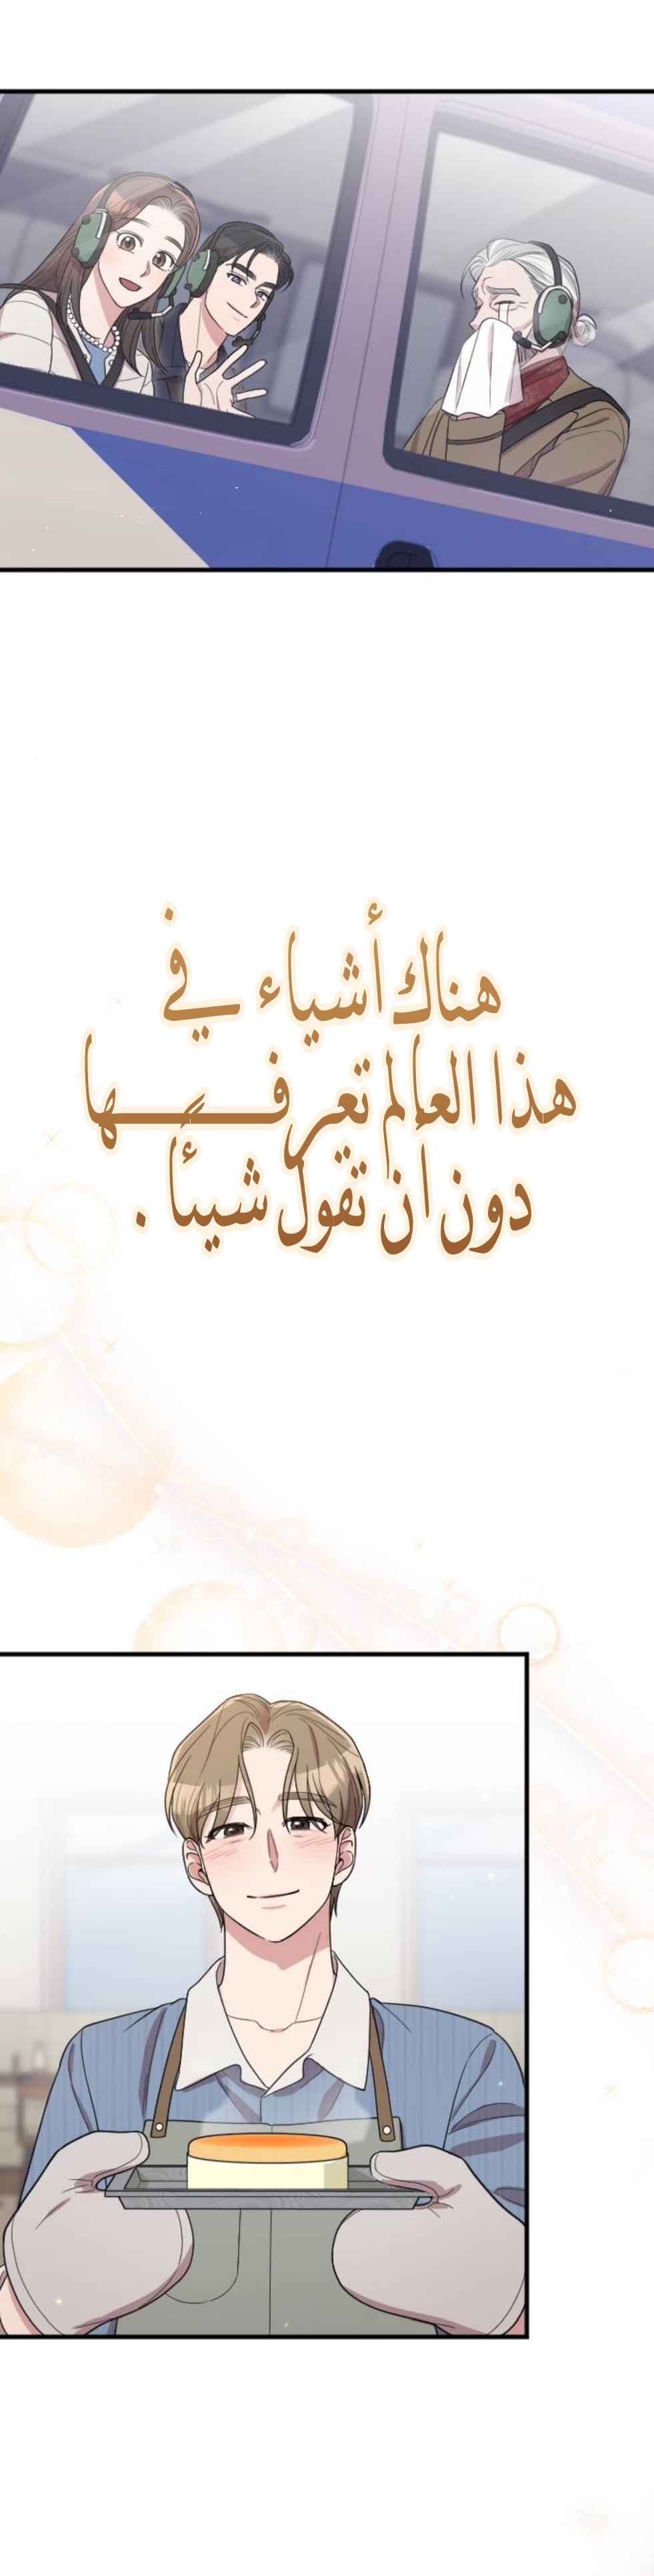 هناك أشياء في
هذا العالم تعرفــــها
دون أن تقول شيئًا .